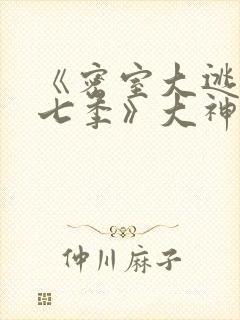 《密室大逃
七季》大神
仲川麻子